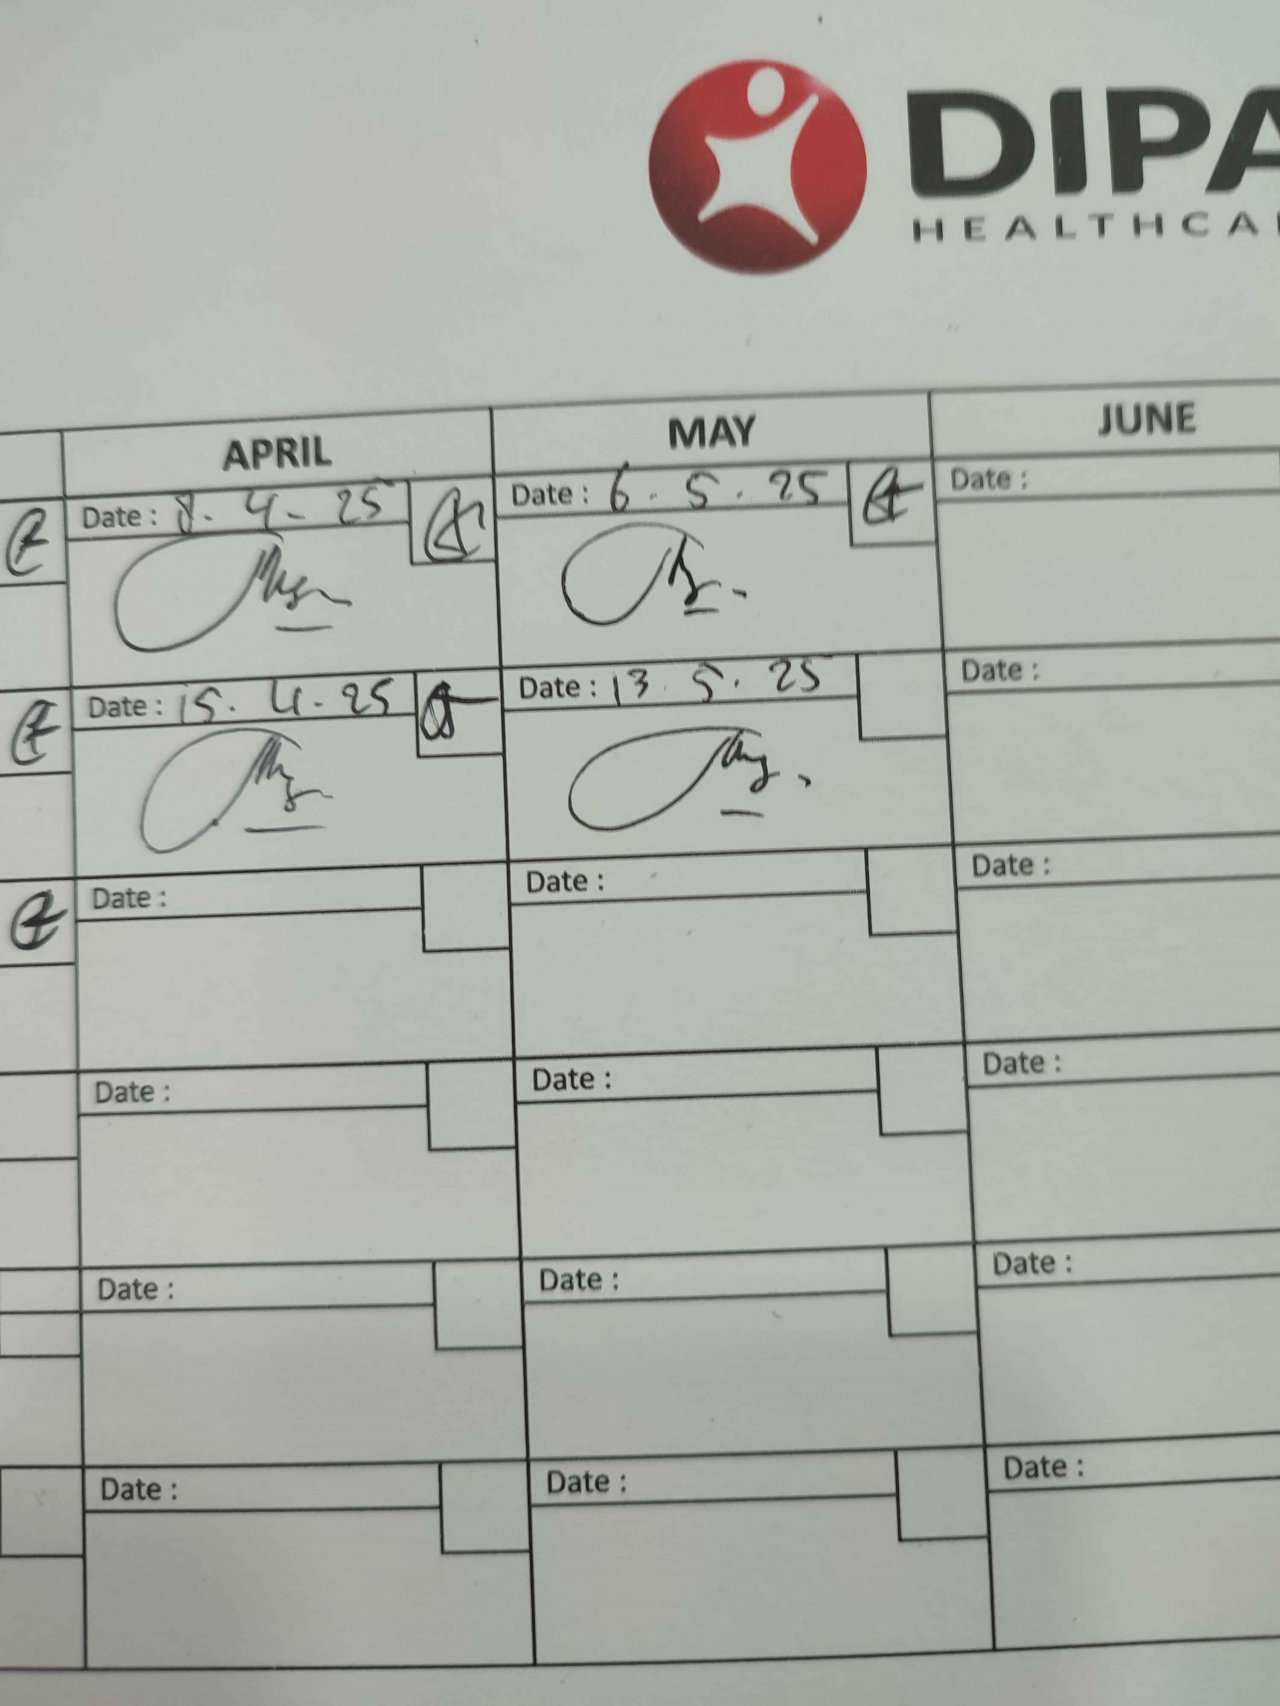 DIPA
HEALTHCA
APRIL MAY JUNE
Date : 8. 4. 25 Date : 6. 5. 25 Date :
Date : 15. 4. 25 Date : 13. 5. 25 Date :
Date : Date : Date :
Date : Date : Date :
Date : Date : Date :
Date : Date : Date :